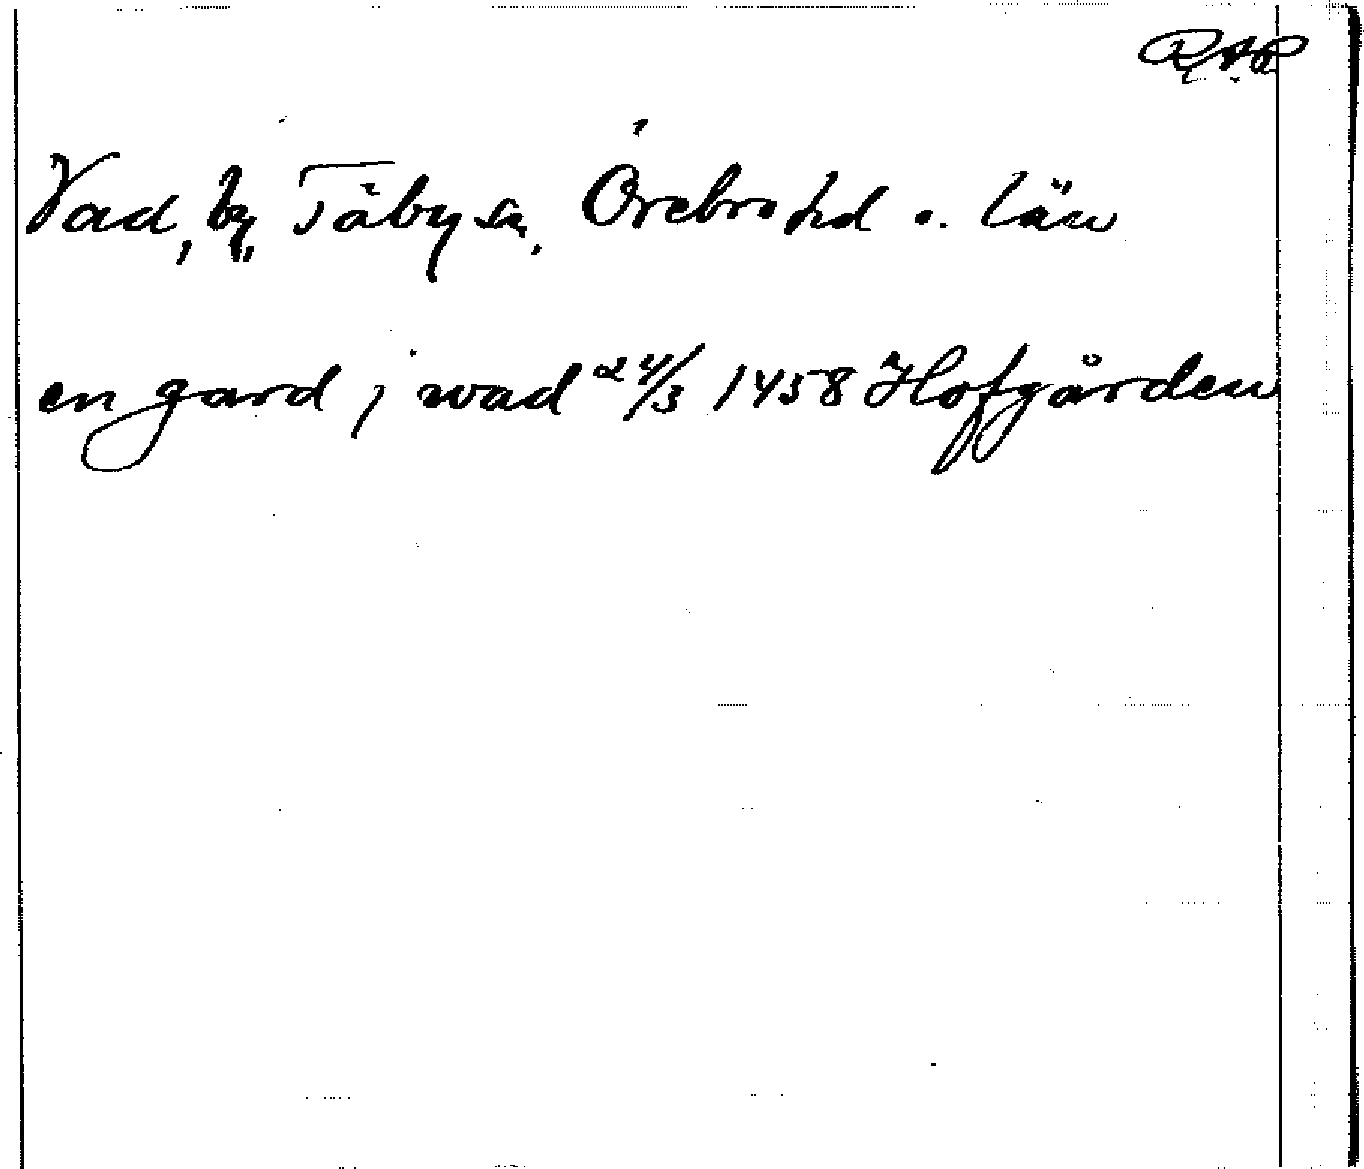 RAP
Vad, by, Täby sn, Örebro hd o. län
en gard j wad 24/3 1458 Hofgården